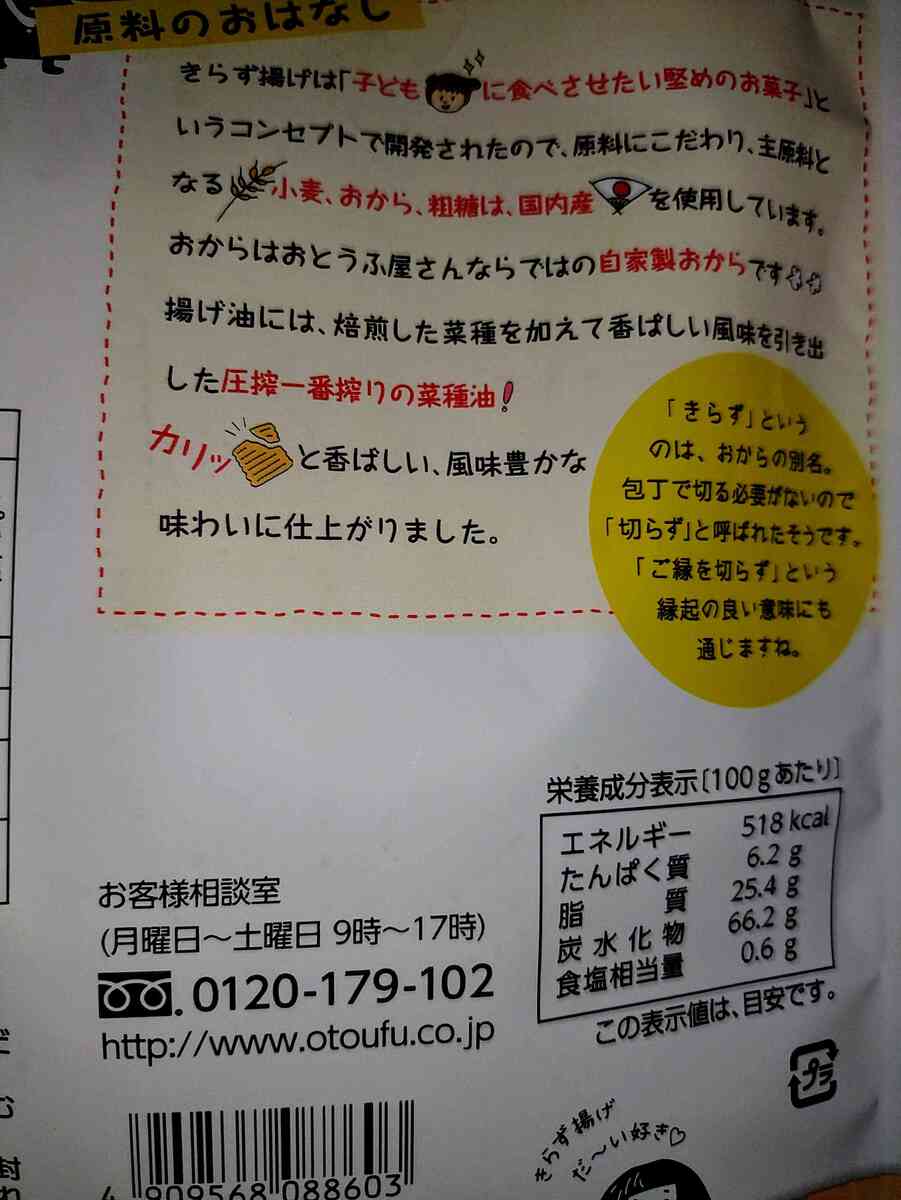 原料のおはなし
きらず揚げは「子どもに食べさせたい堅めのお菓子」と
いうコンセプトで開発されたので、原料にこだわり、主原料と
なる小麦、おから、粗糖は、国内産を使用しています。
おからはおとうふ屋さんならではの自家製おからです
揚げ油には、焙煎した菜種を加えて香ばしい風味を引き出
した圧搾一番搾りの菜種油!
カリッと香ばしい、風味豊かな
味わいに仕上がりました。
「きらず」という
のは、おからの別名。
包丁で切る必要がないので
「切らず」と呼ばれたそうです。
「ご縁を切らず」という
縁起の良い意味にも
通じますね。
栄養成分表示〔100gあたり〕
エネルギー 518 kcal
たんぱく質 6.2 g
脂質 25.4 g
炭水化物 66.2 g
食塩相当量 0.6 g
この表示値は、目安です。
お客様相談室
(月曜日～土曜日 9時～17時)
0120-179-102
http://www.otoufu.co.jp
プラ
きらず揚げ
だ～い好き♡
4 909568 088603